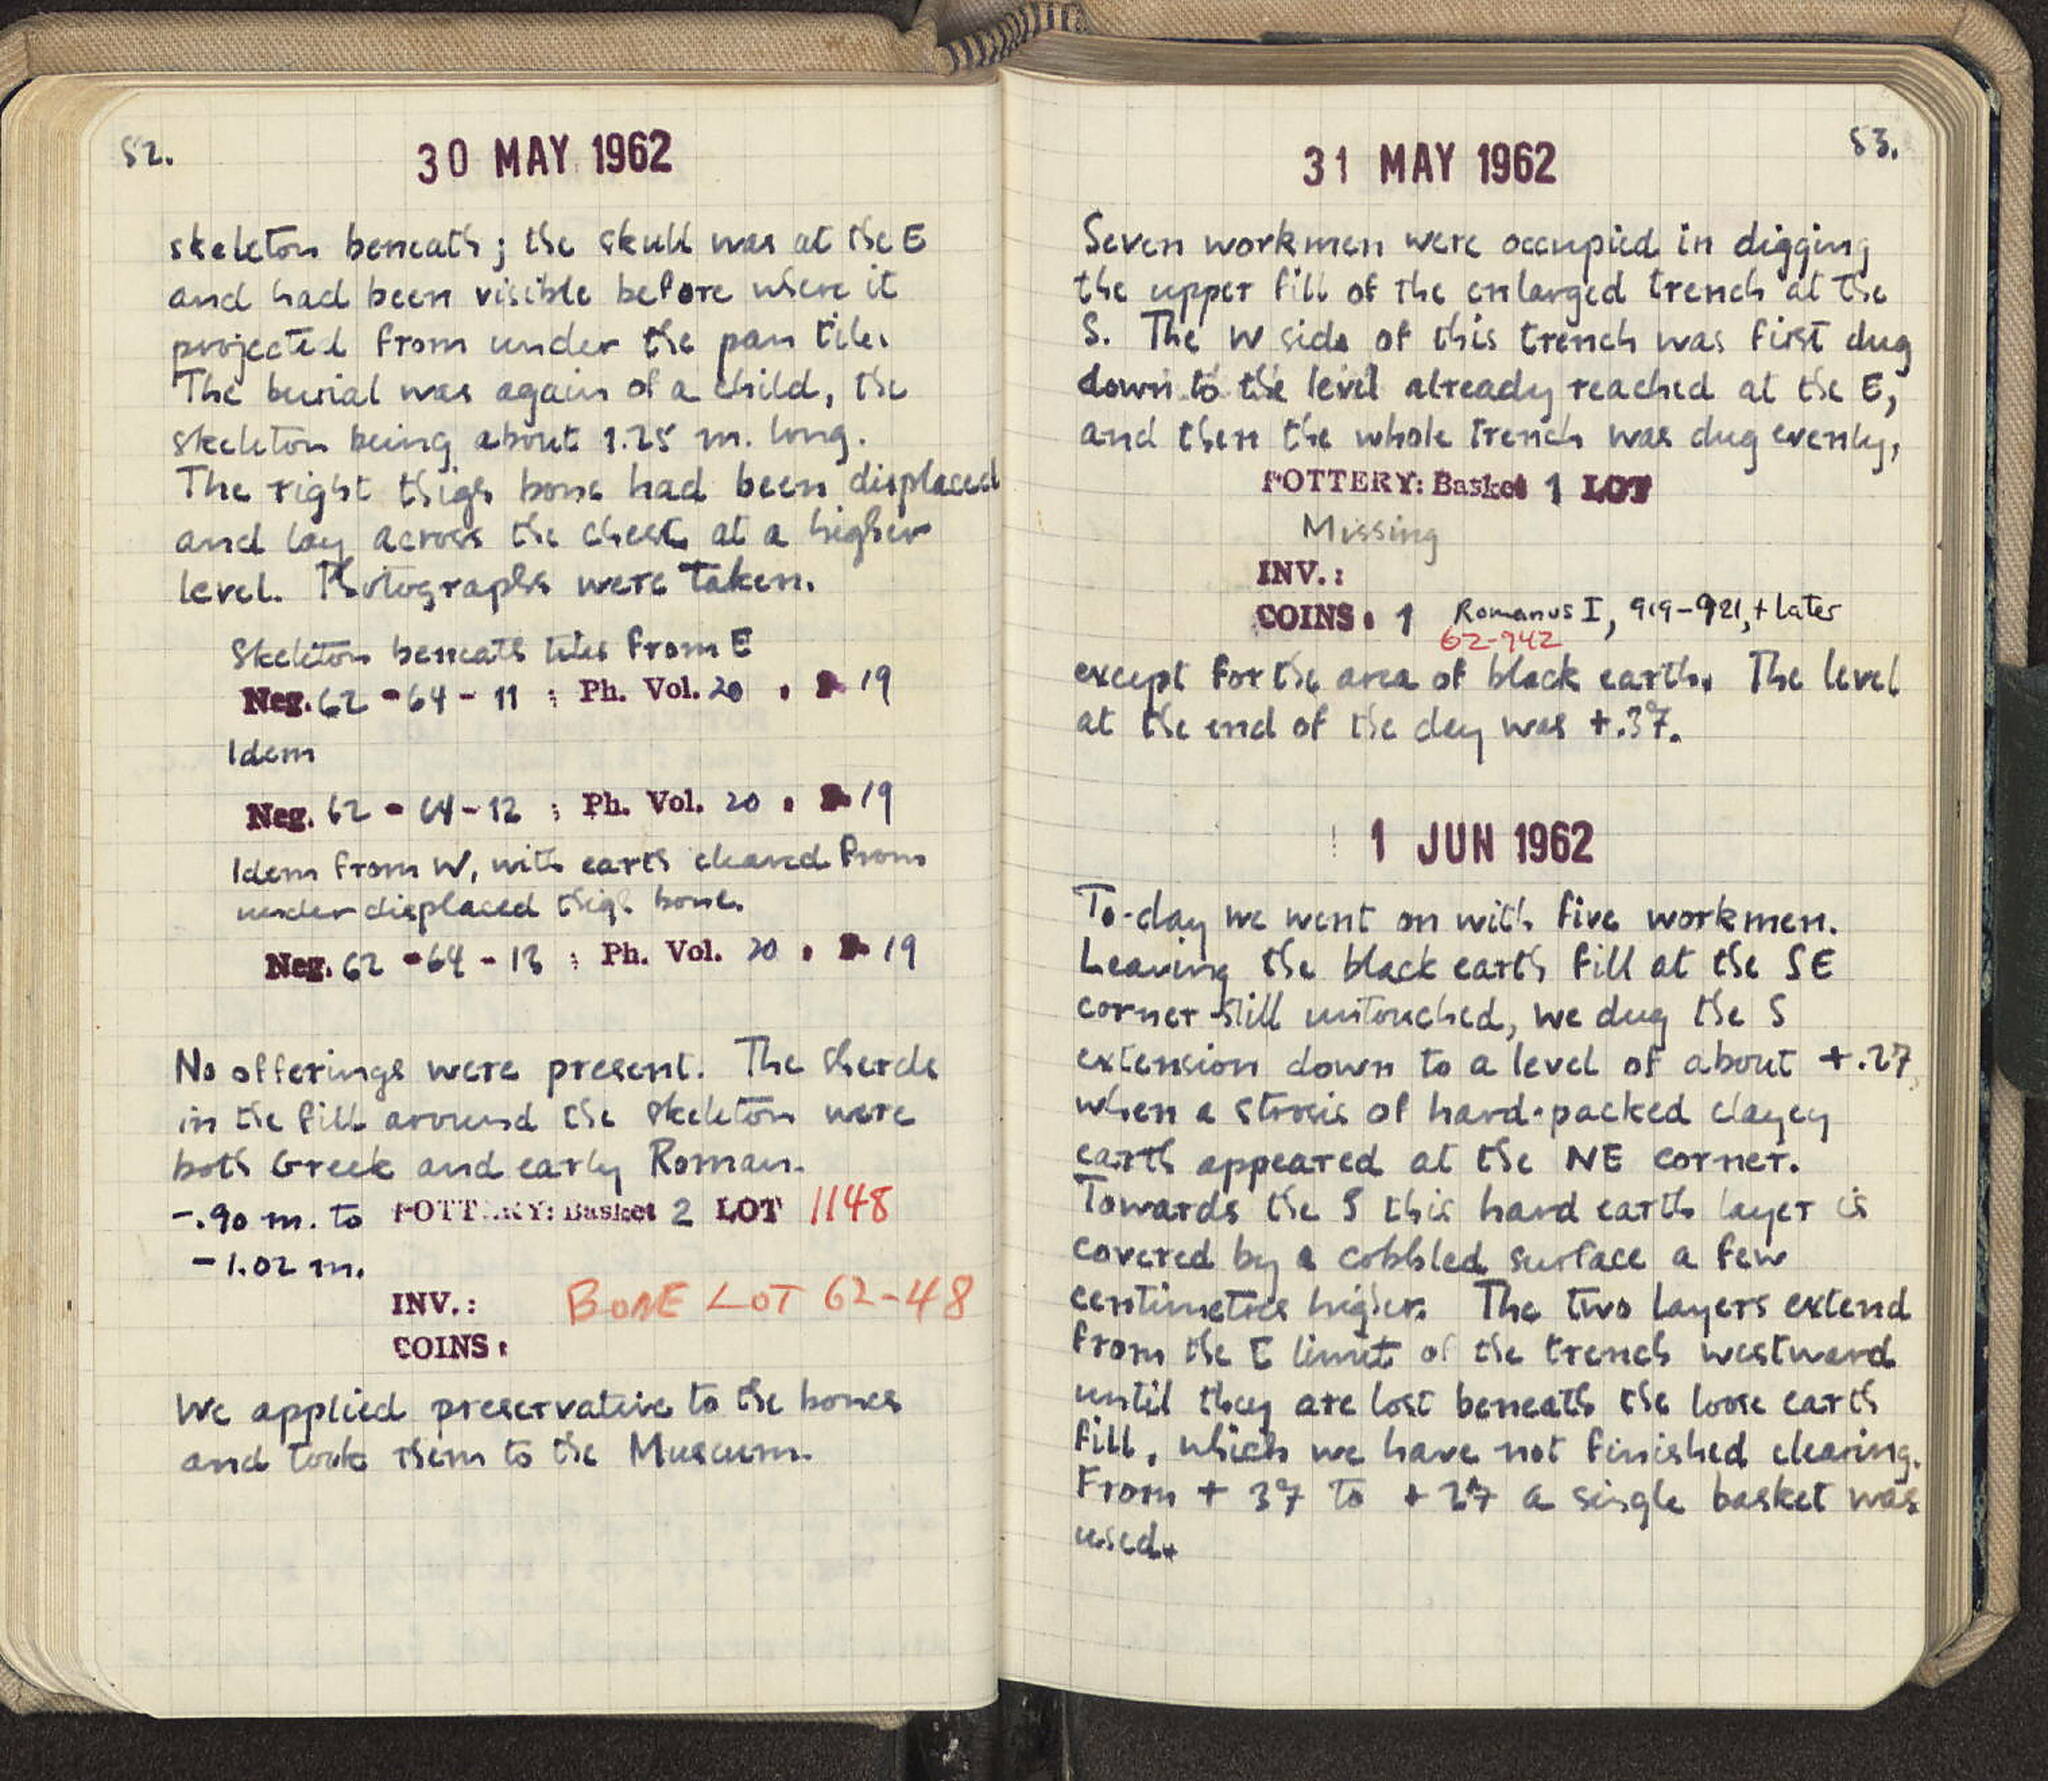 52.
30 MAY 1962
skeleton beneath; the skull was at the E
and had been visible before where it
projected from under the pan tile.
The burial was again of a child, the
skeleton being about 1.25 m. long.
The right thigh bone had been displaced
and lay across the chest at a higher
level. Photographs were taken.
Skeleton beneath tiles from E
Neg. 62-64-11; Ph. Vol. 20, P. 19
Idem
Neg. 62-64-12; Ph. Vol. 20, P. 19
Idem from W, with earth cleared from
under displaced thigh bone.
Neg. 62-64-13; Ph. Vol. 20, P. 19
No offerings were present. The sherds
in the fill around the skeleton were
both Greek and early Roman.
-.90 m. to POTTERY: Basket 2 LOT 1148
-1.02 m.
INV.: BONE LOT 62-48
COINS:
We applied preservative to the bones
and took them to the Museum.
53.
31 MAY 1962
Seven workmen were occupied in digging
the upper fill of the enlarged trench at the
S. The W side of this trench was first dug
down to the level already reached at the E,
and then the whole trench was dug evenly,
POTTERY: Basket 1 LOT
Missing
INV.:
COINS: 1 Romanus I, 919-921, + later
62-942
except for the area of black earth. The level
at the end of the day was +.37.
1 JUN 1962
To-day we went on with five workmen.
Leaving the black earth fill at the SE
corner still untouched, we dug the S
extension down to a level of about +.27,
when a strosis of hard-packed clayey
earth appeared at the NE corner.
Towards the S this hard earth layer is
covered by a cobbled surface a few
centimetres higher. The two layers extend
from the E limit of the trench westward
until they are lost beneath the loose earth
fill, which we have not finished clearing.
From +37 to +27 a single basket was
used.